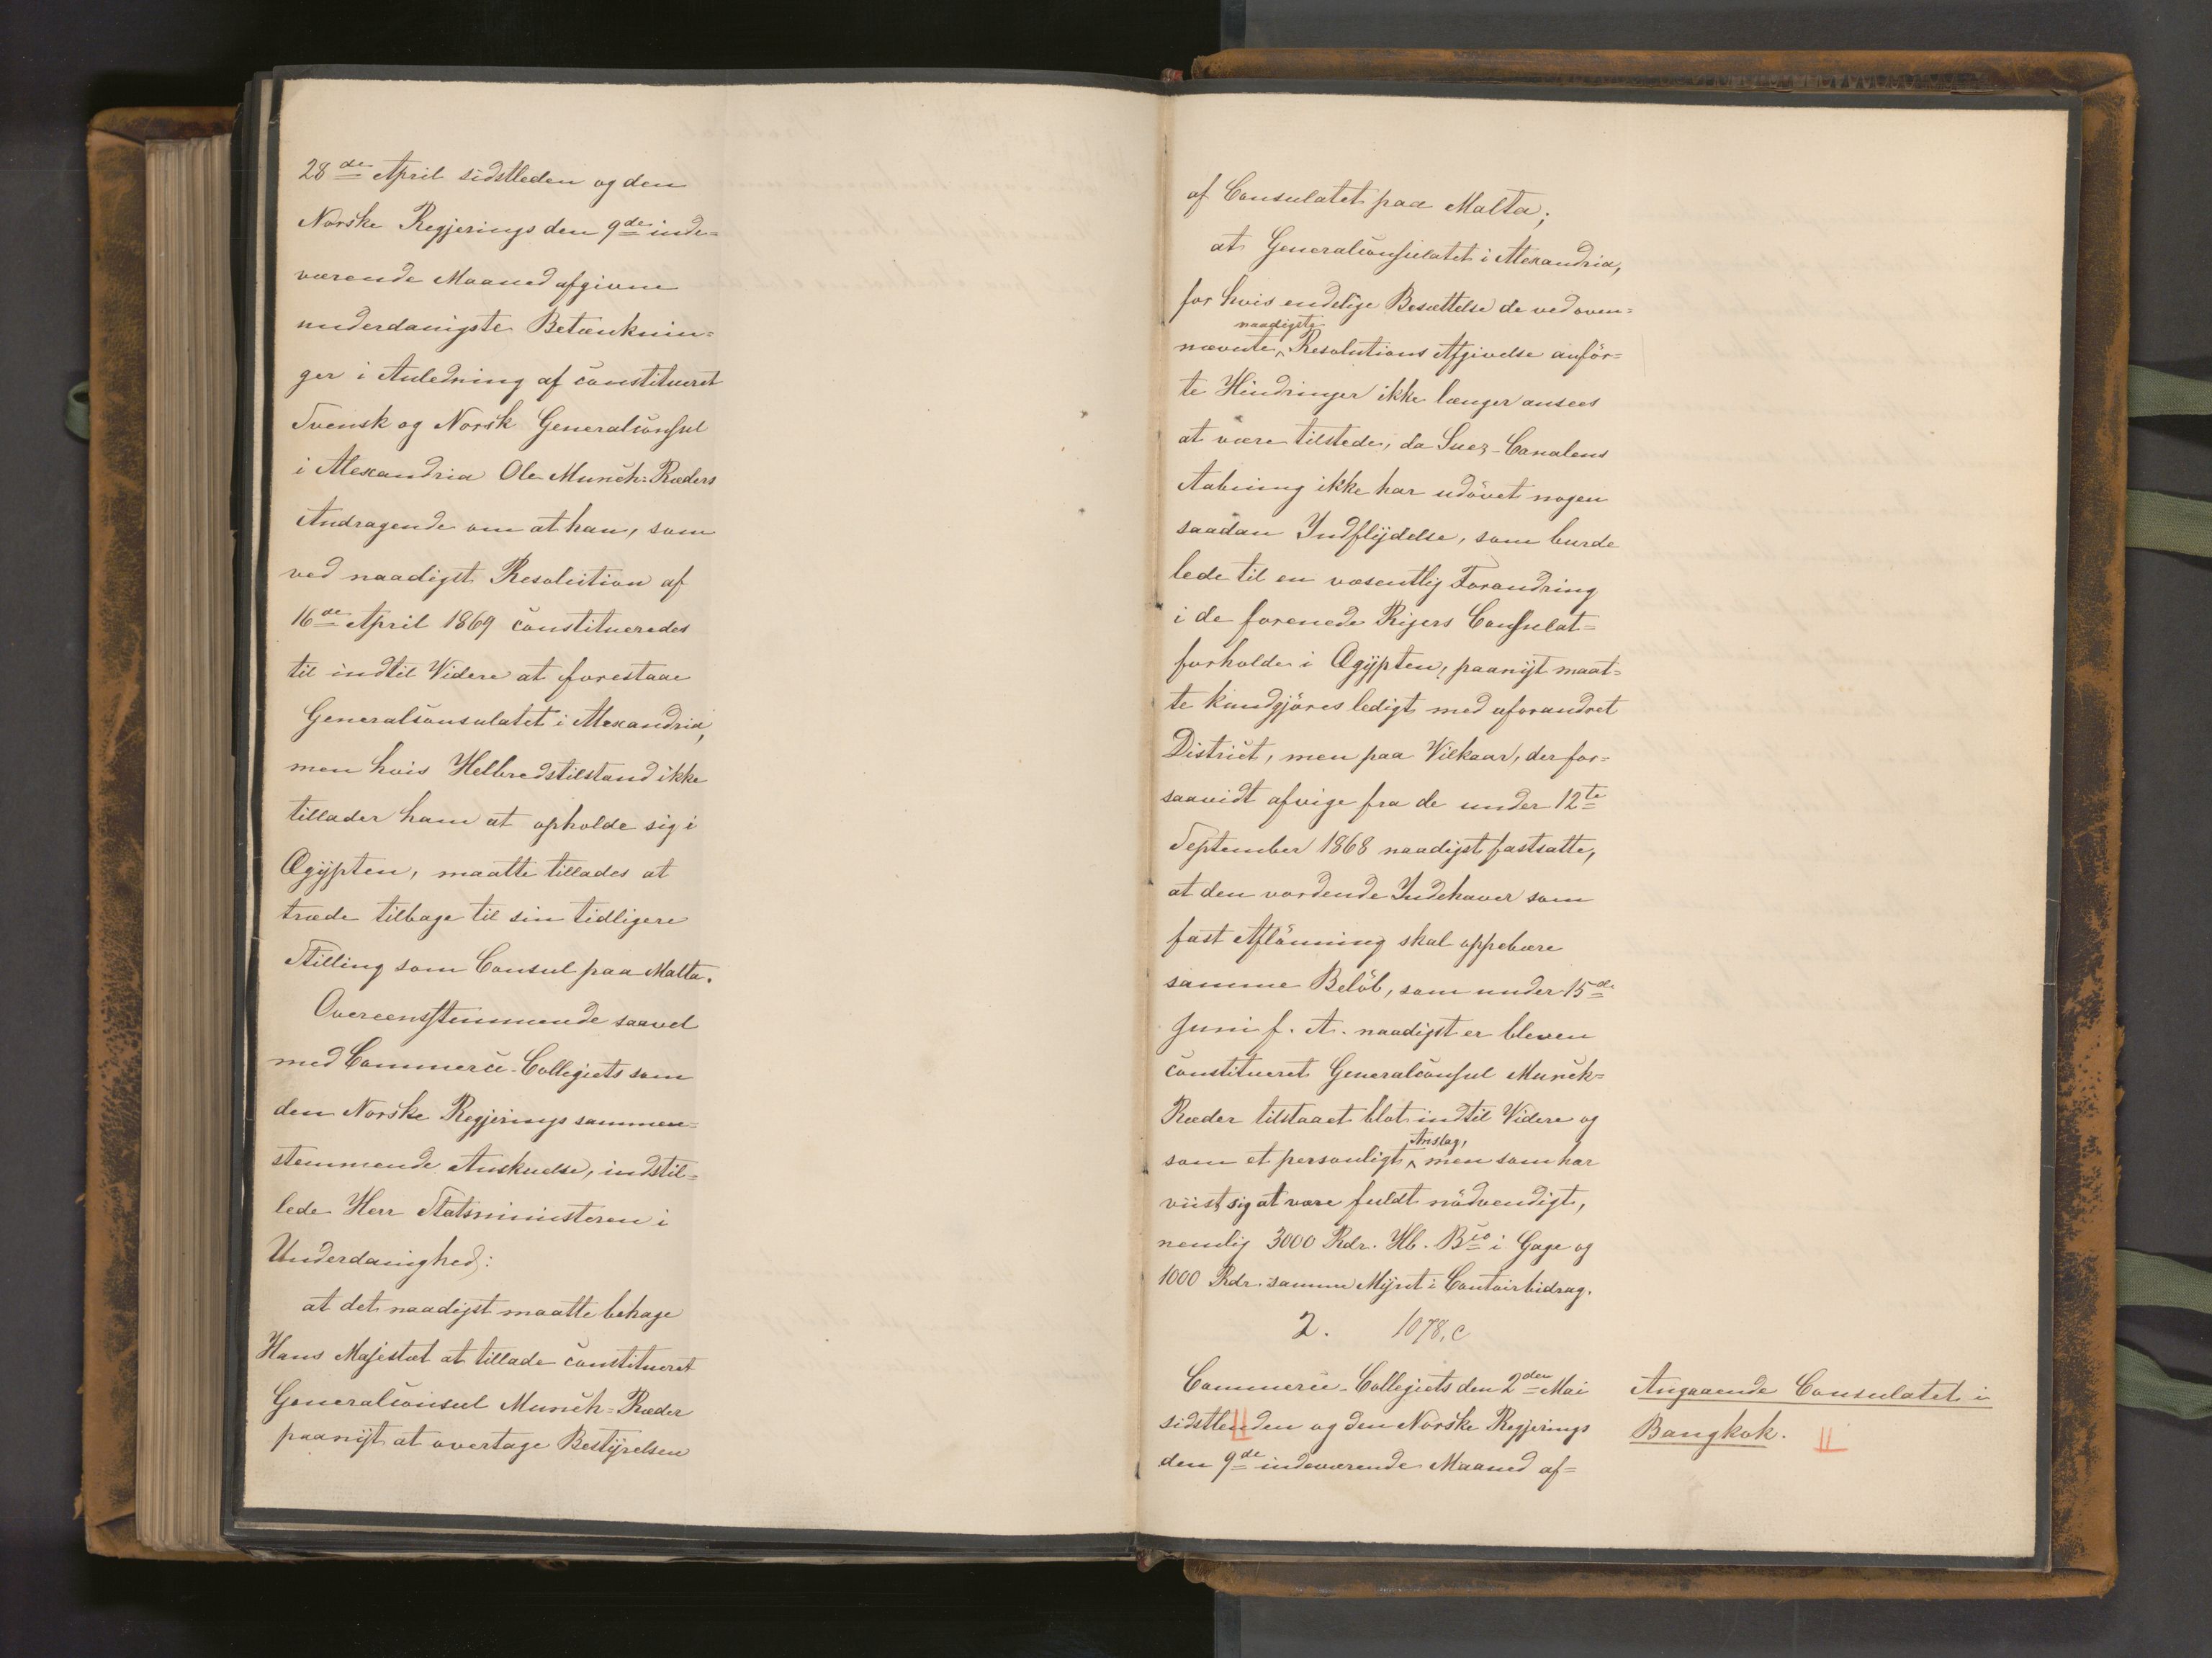 28de April sidstleden og den
Norske Regjerings den 9de inde-
værende Maaned afgivne
underdanigste Betænknin-
ger i Anledning af constitueret
Svensk og Norsk Generalconsul
i Alexandria Ole Munch-Ræders
Andragende om at han, som
ved naadigst Resolution af
16de April 1869 constitueredes
til indtil Videre at forestaae
Generalconsulatet i Alexandria,
men hvis Helbredstilstand ikke
tillader ham at opholde sig i
Ægypten, maatte tillades at
træde tilbage til sin tidligere
Stilling som Consul paa Malta.
Overeensstemmende saavel
med Commerce-Collegiets som
den Norske Regjerings sammen-
stemmende Anskuelse, indstil-
lede Herr Statsministeren i
Underdanighed:
at det naadigst maatte behage
Hans Majestæt at tillade constitueret
Generalconsul Munch-Ræder
paanyt at overtage Bestyrelsen
af Consulatet paa Malta;
at Generalconsulatet i Alexandria,
for hvis endelige Besættelse de ved oven-
nævnte naadigste Resolutions Afgivelse anför-
te Hindringer ikke længer ansees
at være tilstede, da Suez-Canalens
Aabning ikke har udövet nogen
saadan Indflydelse, som burde
lede til en væsentlig Forandring
i de forenede Rigers Consulat-
forholde i Ægypten, paanyt maat-
te kundgjöres ledigt med uforandret
District, men paa Vilkaar, der for-
saavidt afvige fra de under 12te
September 1868 naadigst fastsatte,
at den vordende Indehaver som
fast Aflönning skal oppebære
samme Belöb, som under 15de
Juni f. A. naadigst er bleven
constitueret Generalconsul Munch-
Ræder tilstaaet blot indtil Videre og
som et personligt Anslag, men som har
viist sig at være fuldt nödvendigt,
nemlig 3000 Rdr. Hb. Bco i Gage og
1000 Rdr. samme Mynt i Contoirbidrag.
2. 1078.c
Commerce-Collegiets den 2den Mai
sidstleden og den Norske Regjerings
den 9de indeværende Maaned af-
Angaaende Consulatet i
Bangkok.